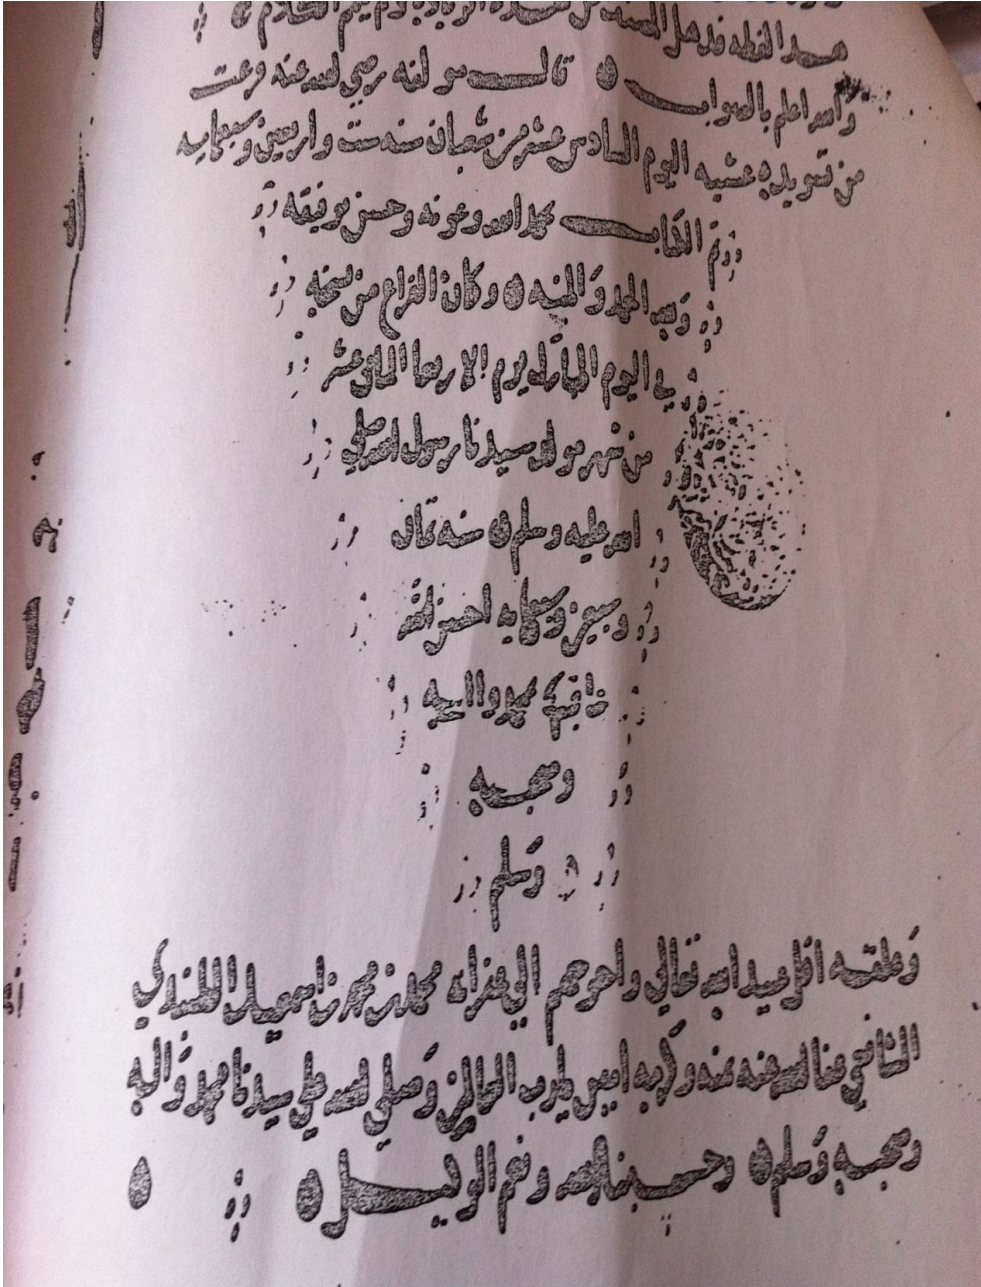 هذا اللفظ قد هل
والله اعلم بالصواب قال مولفه رضي الله عنه فرغت
من تسويده عشيه اليوم السادس عشر من شعبان سنه ست واربعين وسبعمايه
تم الكتاب بحمد الله وعونه وحسن توفيقه
ولله الحمد والمنه وكان الفراغ من نسخه
في اليوم المبارك يوم الاربعا الثاني عشر
من شهر مولد سيدنا رسول الله صلي
الله عليه وسلم سنه ثمان
وسبعين وسبعمايه احسن الله
بمحمد واله
وصحبه
وسلم
وعلقه اقل عبيد الله تعالي واحوجهم الي غفرانه محمد بن محمد بن اسمعيل
الشافعي عفا الله عنه ولابيه امين يارب العالمين وصلي الله علي سيدنا محمد واله
وصحبه وسلم وحسبنا الله ونعم الوكيل